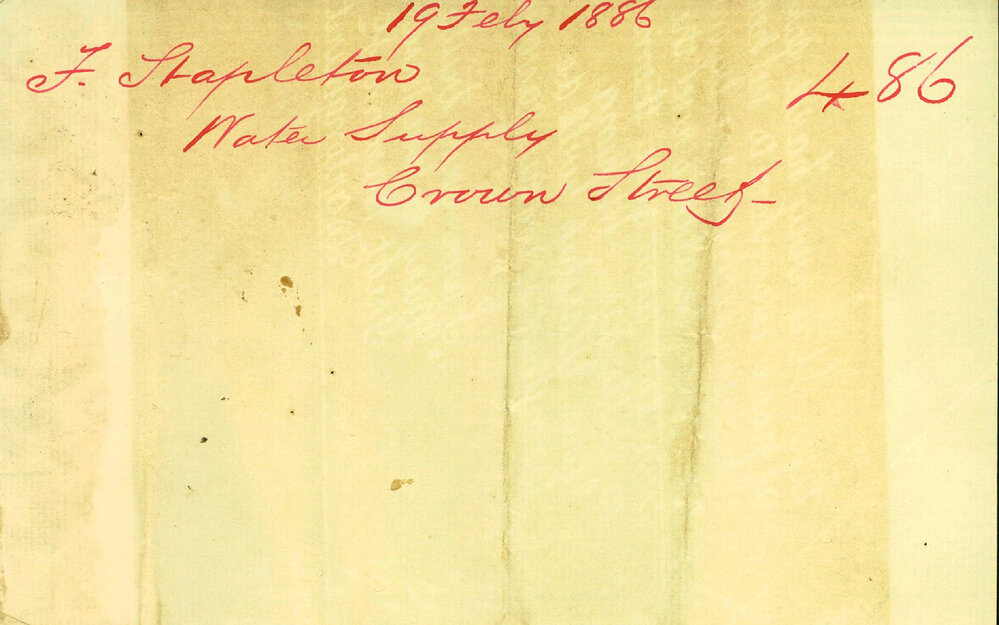 19 Feby 1886
F. Stapleton 486
Water Supply
Crown Street